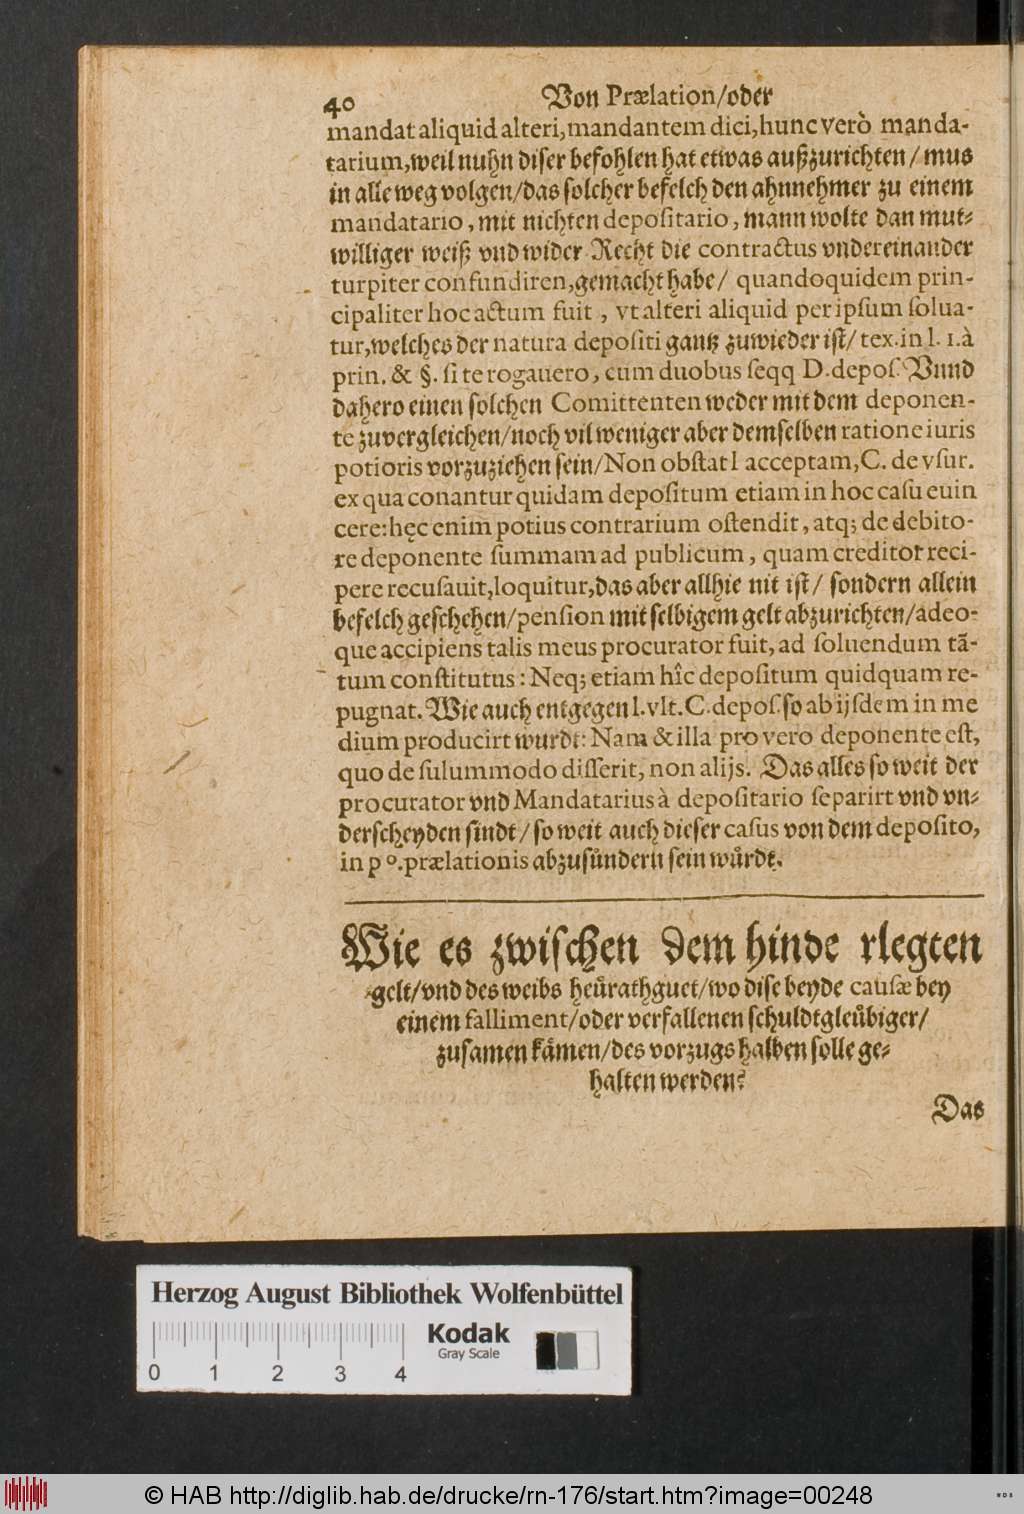 40 Von Prælation/oder
mandat aliquid alteri, mandantem dici, hunc verò manda-
tarium, weil nuhn diser befohlen hat etwas außzurichten / mus
in alle weg volgen/das solcher befelch den ahnnehmer zu einem
mandatario, mit nichten depositario, mann wolte dan mut-
williger weiß vnd wider Recht die contractus vndereinander
turpiter confundiren, gemacht habe/ quandoquidem prin-
cipaliter hoc actum fuit, vt alteri aliquid per ipsum solua-
tur, welches der natura depositi gantz zuwieder ist/ tex. in l. 1. à
prin. & §. si te rogauero, cum duobus seqq D. depos. Vnnd
dahero einen solchen Comittenten weder mit dem deponen-
te zuvergleichen/noch vil weniger aber demselben ratione iuris
potioris vorzuziehen sein/Non obstat l acceptam, C. de vsur.
ex qua conantur quidam depositum etiam in hoc casu euin
cere: hęc enim potius contrarium ostendit, atq; de debito-
re deponente summam ad publicum, quam creditor reci-
pere recusauit, loquitur, das aber allhie nit ist/ sondern allein
befelch geschehen/pension mit selbigem gelt abzurichten/adeo-
que accipiens talis meus procurator fuit, ad soluendum tã-
tum constitutus: Neq; etiam hîc depositum quidquam re-
pugnat. Wie auch entgegen l. vlt. C. depos. so ab ijsdem in me
dium producirt wurdt: Nam & illa pro vero deponente est,
quo de sulummodo disserit, non alijs. Das alles so weit der
procurator vnd Mandatarius à depositario separirt vnd vn-
derscheyden sindt/ so weit auch dieser casus von dem deposito,
in pº. prælationis abzusůndern sein wůrdt.
Wie es zwischen dem hinde rlegten
gelt/vnd des weibs heůrathguet/wo dise beyde causæ bey
einem falliment/oder verfallenen schuldtgleůbiger/
zusamen kåmen/des vorzugs halben solle ge-
halten werden?
Das
Herzog August Bibliothek Wolfenbüttel
Kodak
Gray Scale
0 1 2 3 4
© HAB http://diglib.hab.de/drucke/rn-176/start.htm?image=00248